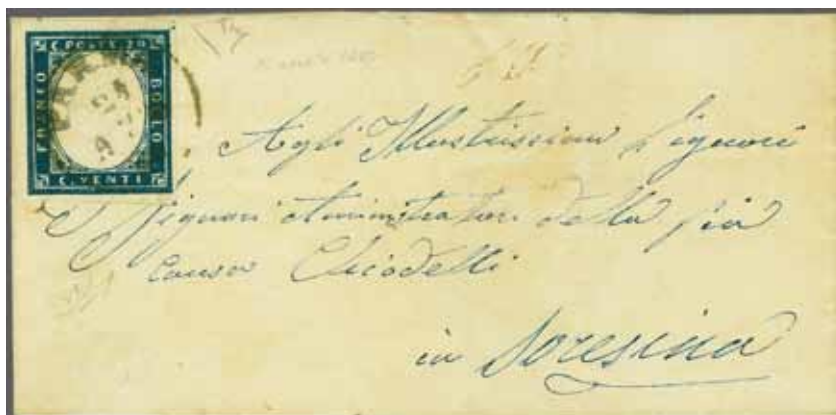 C. POSTE 20
FRANCO
BOLLO
C. VENTI
PARMA
Agli Illustrissimi Signori
Signori Aministratori della pia
Causa
in Soresina